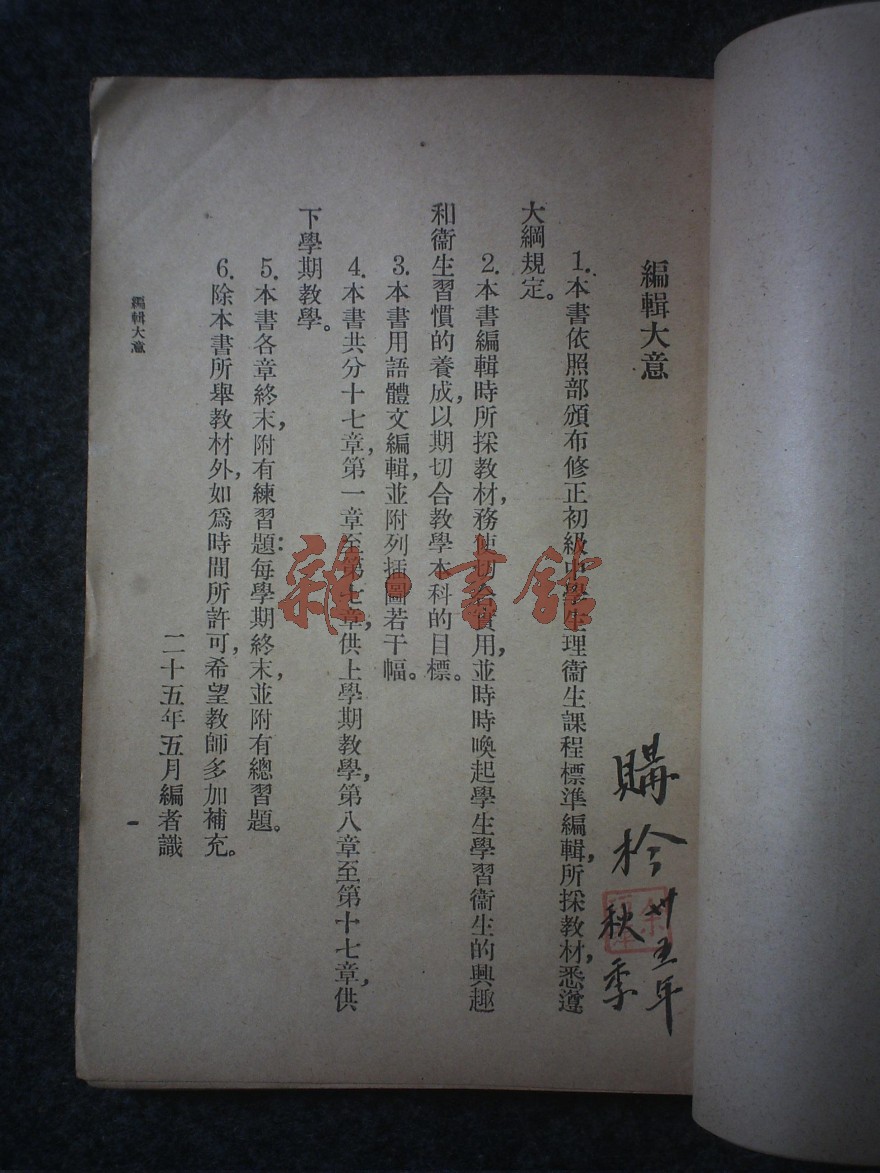 編輯大意
1.本書依照部頒布修正初級中學生理衞生課程標準編輯,所採教材,悉遵
大綱規定。
2.本書編輯時所採教材,務使切合實用,並時時喚起學生學習衞生的興趣
和衞生習慣的養成,以期切合教學本科的目標。
3.本書用語體文編輯,並附列插圖若干幅。
4.本書共分十七章,第一章至第七章,供上學期教學,第八章至第十七章,供
下學期教學。
5.本書各章終末,附有練習題:每學期終末,並附有總習題。
6.除本書所舉教材外,如爲時間所許可,希望教師多加補充。
二十五年五月編者識
編輯大意
一
購於卅五年
秋季
雜·書館